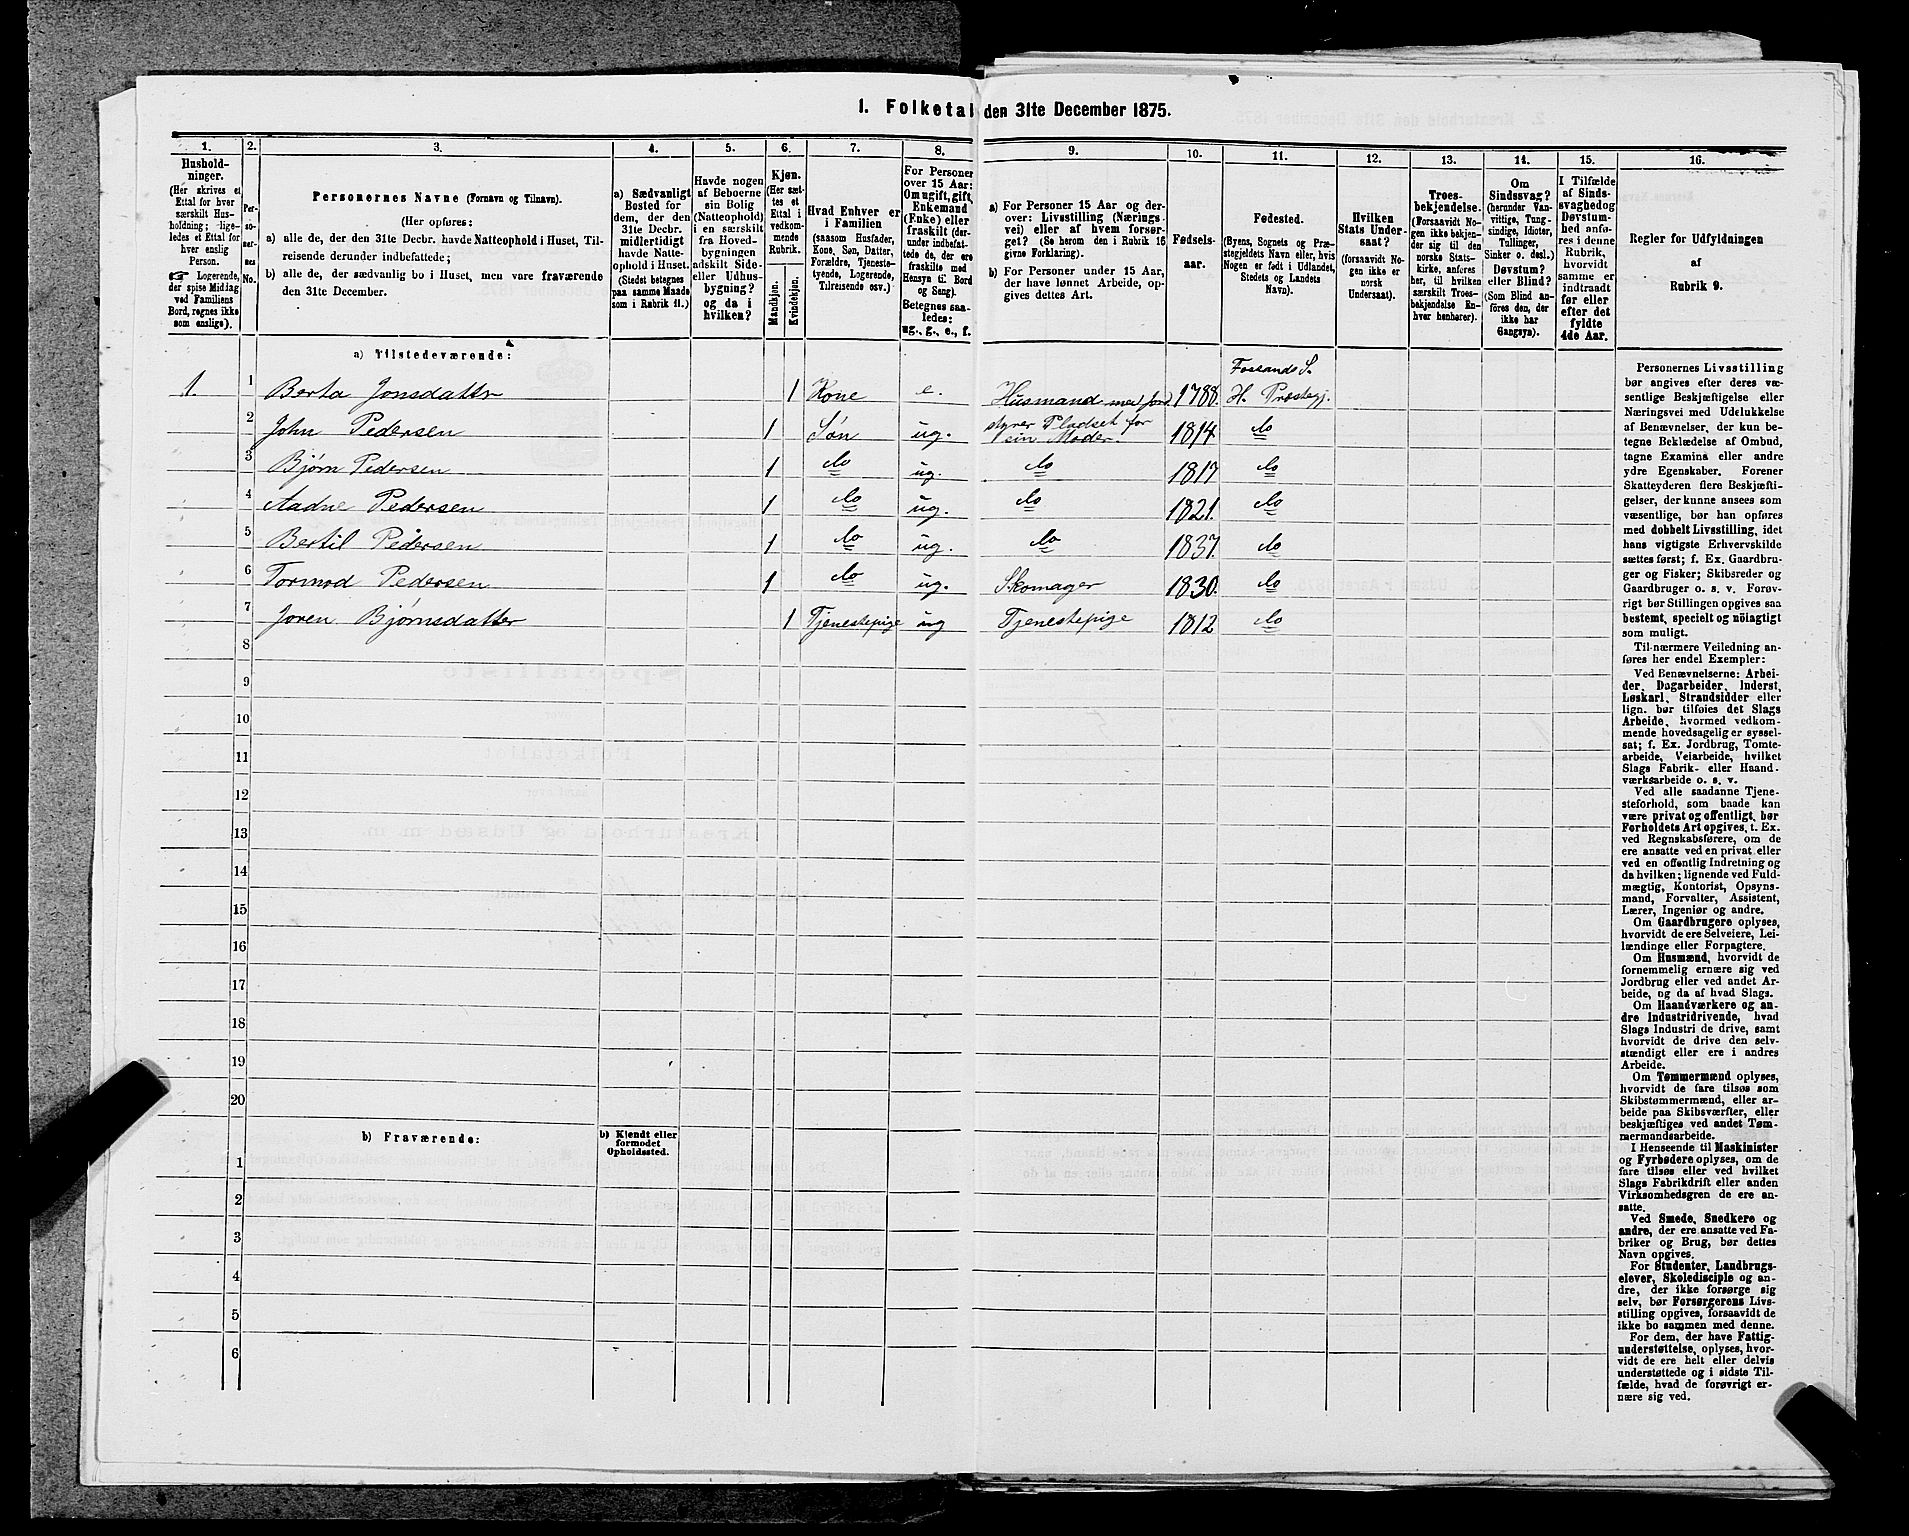 1. Folketal den 31te December 1875.
1. 2. 3. 4. 5. 6. 7. 8. 9. 10. 11. 12. 13. 14. 15. 16.
Hushold-
ninger.
(Her skrives et
Ettal for hver
særskilt Hus-
holdning; lige-
ledes et Ettal for
hver enslig
Person.
☞ Logerende,
der spise Middag
ved Familiens
Bord, regnes ikke
som enslige).
Per-
so-
ner-
nes
No.
Personernes Navne (Fornavn og Tilnavn).
(Her opføres:
a) alle de, der den 31te Decbr. havde Natteophold i Huset, Til-
reisende derunder indbefattede;
b) alle de, der sædvanlig bo i Huset, men vare fraværende
den 31te December.
a) Sædvanligt
Bosted for
dem, der den
31te Decbr.
midlertidigt
havde Natte-
ophold i Huset.
(Stedet betegnes
paa samme Maade
som i Rubrik 11.)
Havde nogen
af Beboerne
sin Bolig
(Natteophold)
i en særskilt
fra Hoved-
bygningen
adskilt Side-
eller Udhus-
bygning?
og da i
hvilken?
Kjøn.
(Her sæt-
tes et
Ettal i
vedkom-
mende
Rubrik.
Mandkjøn.
Kvindekjøn.
Hvad Enhver er
i Familien
(saasom Husfader,
Kone, Søn, Datter,
Forældre, Tjeneste-
tyende, Logerende,
Tilreisende osv.)
For Personer
over 15 Aar:
Om ugift, gift,
Enkemand
(Enke) eller
fraskilt (der-
under indbefat-
tede de, der ere
fraskilte med
Hensyn til Bord
og Seng).
Betegnes saa-
ledes:
ug., g., e., f.
a) For Personer 15 Aar og der-
over: Livsstilling (Nærings-
vei) eller af hvem forsør-
get? (Se herom den i Rubrik 16
givne Forklaring).
b) For Personer under 15 Aar,
der have lønnet Arbeide, op-
gives dettes Art.
Fødsels-
aar.
Fødested.
(Byens, Sognets og Præ-
stegjeldets Navn eller, hvis
Nogen er født i Udlandet,
Stedets og Landets
Navn).
Hvilken
Stats Under-
saat?
(forsaavidt No-
gen ikke er
norsk
Undersaat).
Troes-
bekjendelse.
(Forsaavidt No-
gen ikke bekjen-
der sig til den
norske Stats-
kirke, anføres
her, til hvilken
særskilt Troes-
bekjendelse En-
hver henhører).
Om
Sindssvag?
(herunder Van-
vittige, Tung-
sindige, Idioter,
Tullinger,
Sinker o. desl.)
Døvstum?
eller Blind?
(Som Blind an-
føres den, der
ikke har
Gangsyn).
I Tilfælde
af Sinds-
svaghed og
Døvstum-
hed anfø-
res i denne
Rubrik,
hvorvidt
samme er
indtraadt
før eller
efter det
fyldte
4de Aar.
Regler for Udfyldningen
af
Rubrik 9.
a) Tilstedeværende:
Fossands S.
1. 1 Berta Jonsdatter 1 Kone e. Husmand med Jord 1788. H. Præstegj.
2 John Pedersen 1 Søn ug. styrer Pladset for sin Moder. 1814. do
3 Bjørn Pedersen 1 do ug. do 1817 do
4 Aadne Pedersen 1 do ug. do 1821. do
5 Bertil Pedersen 1 do ug. do 1837. do
6 Tormod Pedersen 1 do ug. Skomager 1830. do
7 Joren Bjørnsdatter 1 Tjenestepige ug Tjenestepige 1812 do
8
9
10
11
12
13
14
15
16
17
18
19
20
b) Fraværende:
b) Kjendt eller
formodet
Opholdssted.
1
2
3
4
5
6
Personernes Livsstilling
bør angives efter deres væ-
sentlige Beskjæftigelse eller
Næringsvei med Udelukkelse
af Benævnelser, der kun be-
tegne Beklædelse af Ombud,
tagne Examina eller andre
ydre Egenskaber. Forener
Skatteyderen flere Beskjæfti-
gelser, der kunne ansees som
væsentlige, bør han opføres
med dobbelt Livsstilling, idet
hans vigtigste Erhvervskilde
sættes først; f. Ex. Gaardbru-
ger og Fisker; Skibsreder og
Gaardbruger o. s. v. Forøv-
rigt bør Stillingen opgives saa
bestemt, specielt og nöiagtigt
som muligt.
Til nærmere Veiledning an-
føres her endel Exempler:
Ved Benævnelserne: Arbei-
der, Dagarbeider, Inderst,
Løskarl, Strandsidder eller
lign. bør tilføies det Slags
Arbeide, hvormed vedkom-
mende hovedsagelig er syssel-
sat; f. Ex. Jordbrug, Tomte-
arbeide, Veiarbeide, hvilket
Slags Fabrik- eller Haand-
værksarbeide o. s. v.
Ved alle saadanne Tjene-
steforhold, som baade kan
være privat og offentligt, bør
Forholdets Art opgives, t. Ex.
ved Regnskabsførere, om de
ere ansatte ved en privat eller
ved en offentlig Indretning og
da hvilken; lignende ved Fuld-
mægtig, Kontorist, Opsyns-
mand, Forvalter, Assistent,
Lærer, Ingeniør og andre.
Om Gaardbrugere oplyses,
hvorvidt de ere Selveiere, Lei-
lændinge eller Forpagtere.
Om Husmænd, hvorvidt de
fornemmelig ernære sig ved
Jordbrug eller ved andet Ar-
beide, og da af hvad Slags.
Om Haandværkere og an-
dre Industridrivende, hvad
Slags Industri de drive, samt
hvorvidt de drive den selv-
stændigt eller ere i andres
Arbeide.
Om Tømmermænd oplyses,
hvorvidt de fare tilsøs som
Skibstømmermænd, eller ar-
beide paa Skibsværfter, eller
beskjæftiges ved andet Tøm-
mermandsarbeide.
I Henseende til Maskinister
og Fyrbødere oplyses, om de
fare tilsøs eller ved hvilket
Slags Fabrikdrift eller anden
Virksomhedsgren de ere an-
satte.
Ved Smede, Snedkere og
andre, der ere ansatte ved Fa-
briker og Brug, bør dettes
Navn opgives.
For Studenter, Landbrugs-
elever, Skoledisciple og an-
dre, der ikke forsørge sig
selv, bør Forsørgerens Livs-
stilling opgives, forsaavidt de
ikke bo sammen med denne.
For dem, der have Fattig-
understøttelse, oplyses, hvor-
vidt de ere helt eller delvis
understøttede og i sidste Til-
fælde, hvad de forøvrigt er-
nære sig ved.